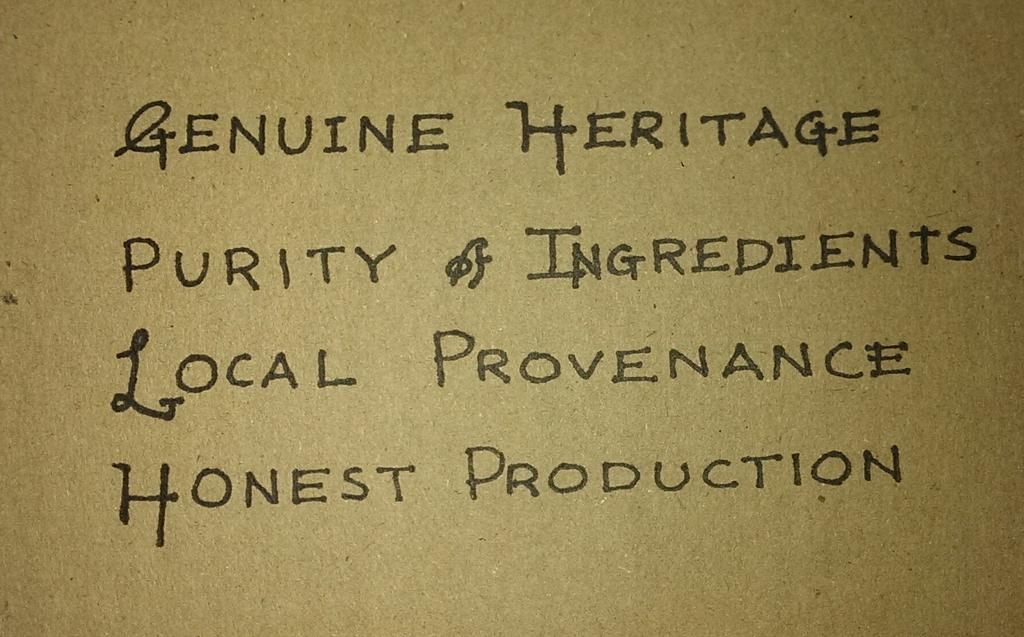 GENUINE HERITAGE
PURITY of INGREDIENTS
LOCAL PROVENANCE
HONEST PRODUCTION